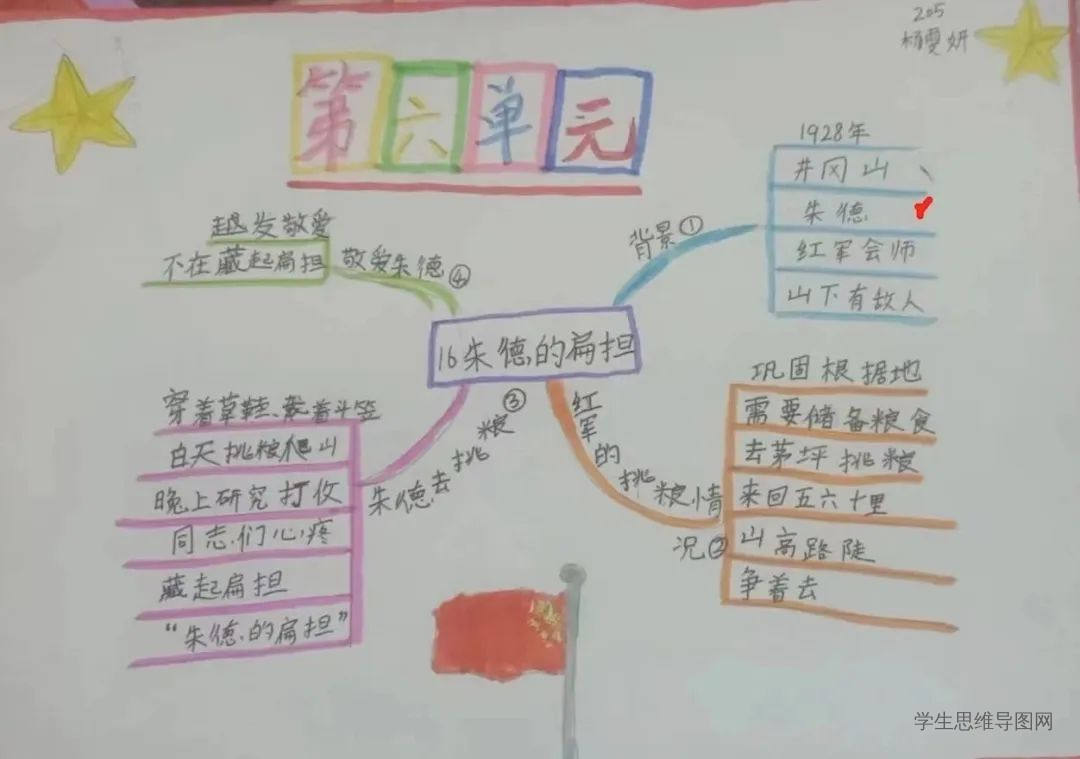 205
杨雯妍
第六单元
1928年
井冈山
朱德
红军会师
山下有故人
背景①
越发敬爱
不在藏起扁担
敬爱朱德④
16朱德的扁担
巩固根据地
需要储备粮食
去茅坪挑粮
来回五六十里
山高路陡
争着去
红军的挑粮情况②
朱德去挑粮③
穿着草鞋、戴着斗笠
白天挑粮爬山
晚上研究打仗
同志们心疼
藏起扁担
“朱德的扁担”
学生思维导图网